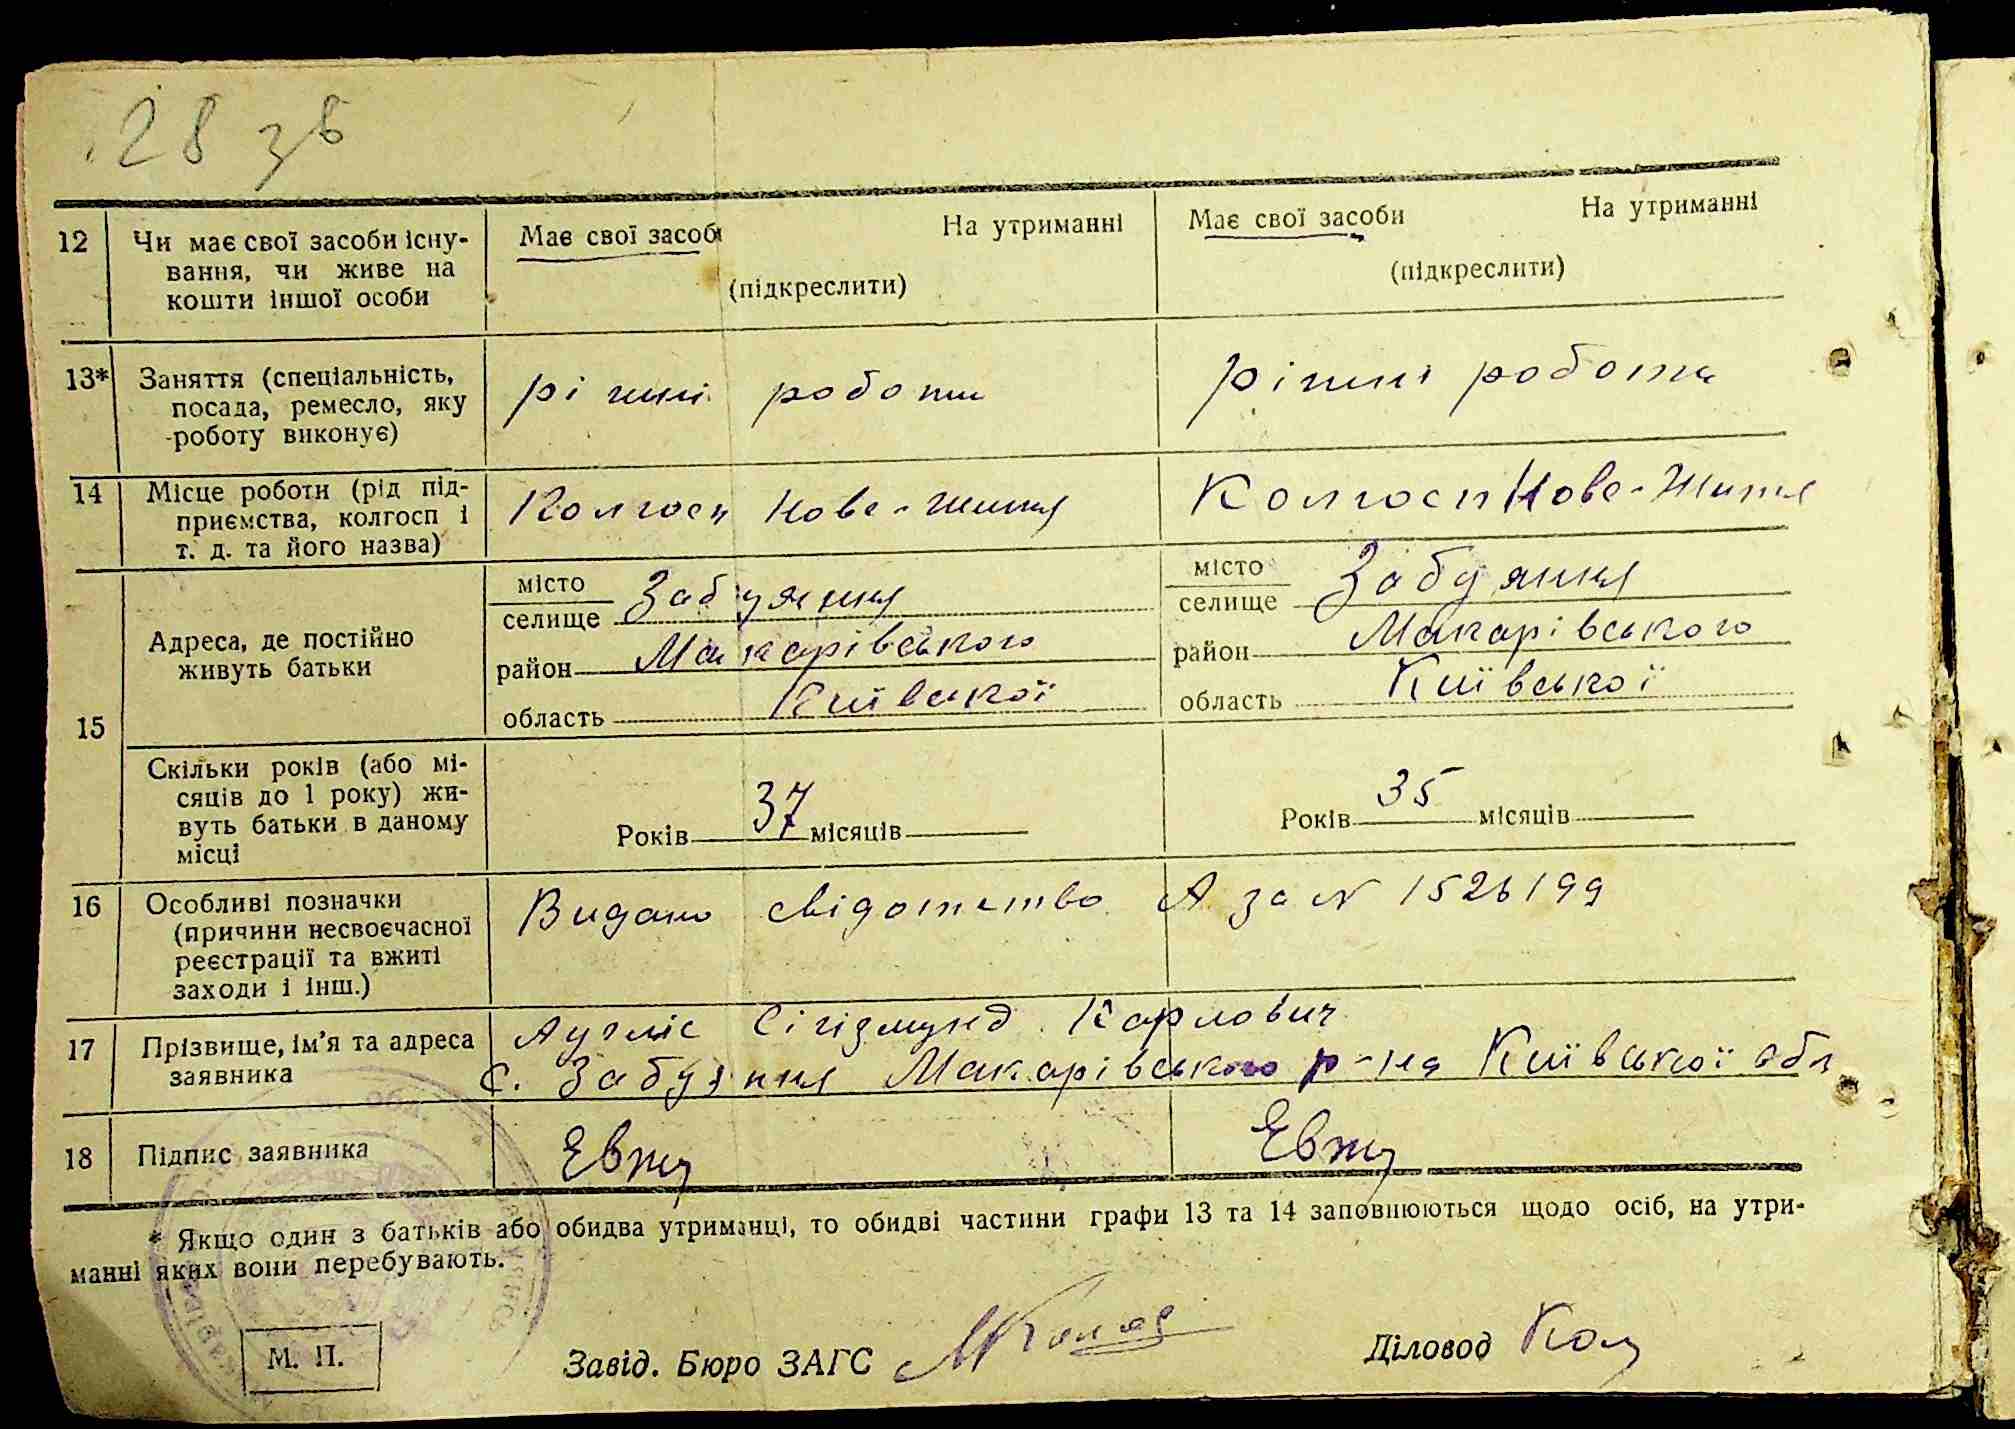 28 зв
12 Чи має свої засоби існу- Має свої засоби На утриманні Має свої засоби На утриманні
вання, чи живе на (підкреслити) (підкреслити)
кошти іншої особи
13* Заняття (спеціальність, різні роботи різні роботи
посада, ремесло, яку
роботу виконує)
14 Місце роботи (рід під- Колгосп Нове-Життя Колгосп Нове-Життя
приємства, колгосп і
т. д. та його назва)
15 Адреса, де постійно
живуть батьки
місто Забуяння місто Забуяння
селище селище
район Макарівського район Макарівського
область Київської область Київської
Скільки років (або мі-
сяців до 1 року) жи-
вуть батьки в даному
місці
Років 37 місяців Років 35 місяців
16 Особливі позначки Видано свідотство А за N 1526199
(причини несвоєчасної
реєстрації та вжиті
заходи і інш.)
17 Прізвище, ім’я та адреса Сігізмунд Карлович
заявника с. Забуяння Макарівського р-на Київської обл
18 Підпис заявника
* Якщо один з батьків або обидва утриманці, то обидві частини графи 13 та 14 заповнюються щодо осіб, на утри-
манні яких вони перебувають.
М. П.
Завід. Бюро ЗАГС Діловод